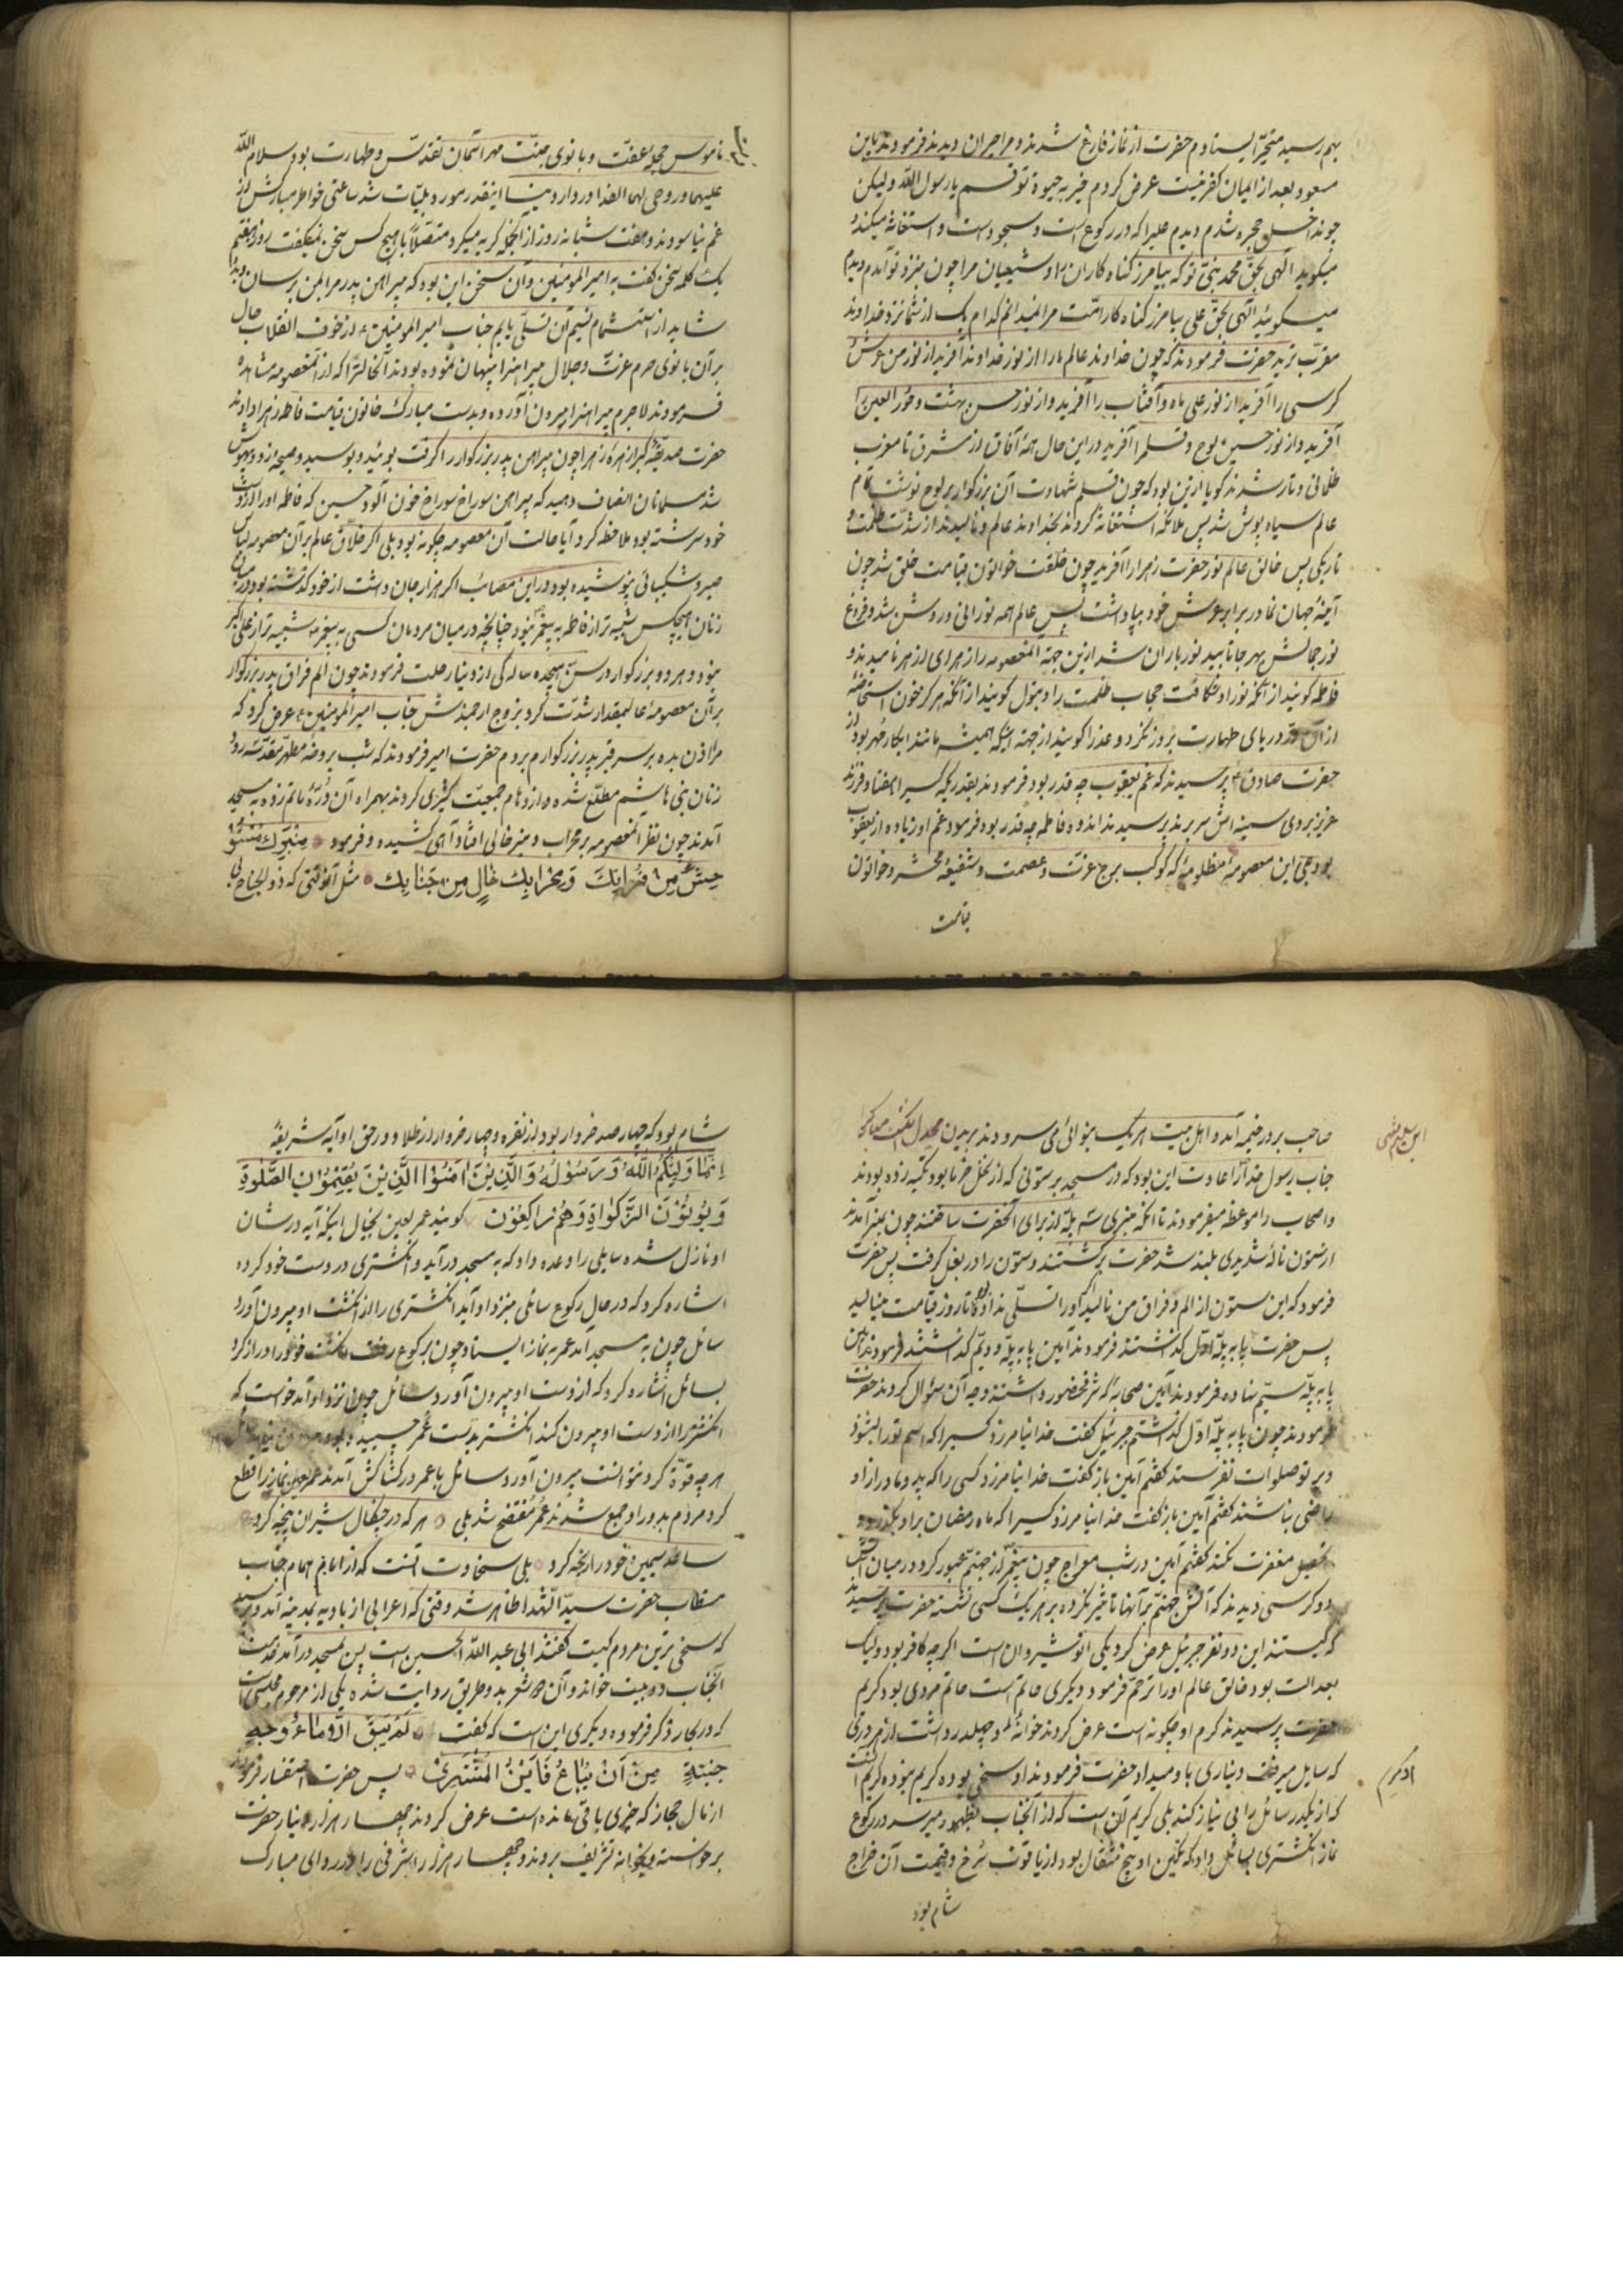 بهم رسید متحیر ایستادم حضرت از نماز فارغ شدند و مرا حیران دیدند فرمودند یا بن
مسعود بعد از ایمان کفر نیست عرض کردم خیر به حیوة تو قسم یا رسول الله و لیکن
چون داخل حجره شدم دیدم علیرا که در رکوع است و سجود است و استغاثه میکند و
میکوید الهی بحق محمد نبی تو که بیامرز کناه کاران را و شیعیان مرا چون بنزد تو آمدم دیدم
میکوئید الهی بحق علی بیامرز کناه کار امت مرا نمیدانم کدام یک از شما نزد خداوند
مقرب ترید حضرت فرمودند که چون خداوند عالم مارا از نور خداوند آفرید از نور من عرش و
کرسی را آفرید از نور علی ماه و آفتاب را آفرید و از نور حسن بهشت و حور العین را
آفرید و از نور حسین لوح و قلم را آفرید در این حال همه آفاق از مشرق تا مغرب
ظلمانی و تار شدند کویا از این بود که چون قلم شهادت آن بزرکوار بر لوح نوشت تمام
عالم سیاه پوش شد پس ملائکه استغاثه کردند بخداوند عالم و نالیدند از شدت ظلمت و
تاریکی پس خالق عالم نور حضرت زهرا را آفرید چون خلقت خواتون قیامت خلق شد چون
آینه جهان نما در برابر عرش خود بپا داشت پس عالم همه نورانی و روشن شد و فروغ
نور جمالش بهر جا تابید نور باران شد از این جهة المعصومه را زهرای ازهر نامیدند و
فاطمه کویند از آنکه نور او شکافت حجاب ظلمت را و بتول کویند از آنکه هرکز خون استحاضه
از آن در دریای طهارت بروز نکرد و عذرا کویند از جهة اینکه همیشه مانند ابکار مهر بود از
حضرت صادق ع پرسیدند که غم یعقوب چه قدر بود فرمودند بقدریکه کسیرا هفتاد فرزند
عزیز بروی سینه اش سر برند پرسیدند اندوه فاطمه چه قدر بود فرمود غم او زیاده از یعقوب
بود بلی این معصومه مظلومه که کوکب برج عزت و عصمت و شفیعه محشر و خواتون
قیامت
ناموس حجله عفت و بانوی جنت مهر آسمان تقدس و طهارت بود سلام الله
علیها و روحی لها الفدا در دار دنیا اینقدر مورد بلیات شد ساعتی خواطر مبارکش از
غم نیاسود و هفت شبانه روز از آنجمله کریه میکرد متصلا با هیچ کس سخن نمیکفت روز هفتم
یک کلمه سخن کفت به امیر المومنین و آن سخن این بود که پیراهن پدر مرا بمن برسان
شاید از استشمام نسیم آن تسلی یابم جناب امیر المومنین ع از خوف انقلاب حال
بر آن بانوی حرم عزت و جلال پیراهنرا پنهان نموده بودند آنحالترا که از آنمعصومه مشاهده
فرمودند لاجرم پیراهنرا بیرون آورده و بدست مبارک خاتون قیامت فاطمه زهرا دادند
حضرت صدیقه کبرا زهره زهرا چون پیراهن پدر بزرکوار را کرفت بوئید و بوسید و صیحه زد و بیهوش
شد مسلمانان انصاف دهید که پیراهن سوراخ سوراخ خون آلود حسین که فاطمه اورا
خود سرشته بود ملاحظه کرد آیا حالت آن معصومه چکونه بود بلی اکر خلاق عالم بر آن معصومه لباس
صبر و شکیبائی پوشیده بود در این مصائب اکر هزار جان داشت از خود کذشته بود
زنان هیچکس شبیه تر از فاطمه به پیغمبر نبود چنانچه در میان مردمان کسی به پیغمبر شبیه تر از علی اکبر
نبود و هر دو بزرکوار در سن هیجده سالکی از دنیا رحلت فرمودند چون الم فراق پدر بزرکوار
بر آن معصومه عالیمقدار شدت کرد بزوج ارجمندش جناب امیر المومنین ع عرض کرد که
مرا اذن بده بر سر قبر پدر بزرکوارم بروم حضرت امیر فرمودند که شب بروضه مطهر مقدسه رو
زنان بنی هاشم مطلع شده و ازدهام جمعیت کثیری کردند بهمراه آن دره ماتم زده به مسجد
آمدند چون نظر آنمعصومه بر محراب و منبر خالی افتاد آهی کشیده و فرمود
و محرابک خال من جنابک مثل آنوقتی که ذوالجناح بی
صاحب بر در خیمه آمد و اهل بیت هر یک بنوائی می سرودند
جناب رسول خدا را عادت این بود که در مسجد بر ستونی که از نخل خرما بود تکیه زده بودند
و اصحاب را موعظه میفرمودند تا آنکه منبری سه پله از برای آنحضرت ساختند چون بمنبر آمدند
از ستون ناله شدیدی بلند شد حضرت برکشتند و ستون را در بغل کرفت پس حضرت
فرمود که این ستون از الم و فراق من نالید اکر اورا تسلی نداده تا روز قیامت مینالید
پس حضرت پا به پله اول کذاشتند فرمودند آمین پا به پله دویم کذاشتند فرمودند آمین
پا به پله سیم نهاده فرمودند آمین صحابه که شرف حضور داشتند وجه آن سئوال کردند حضرت
فرمودند چون پا به پله اول کذاشتم جبرئیل کفت خدا نیامرزد کسیرا که اسم تورا بشنود
و بر تو صلوات نفرستد کفتم آمین باز کفت خدا نیامرزد کسی را که پدر و مادر از او
راضی نباشند کفتم آمین باز کفت خدا نیامرزد کسیرا که ماه رمضان بر او بکذرد و
تحصیل مغفرت نکند کفتم آمین در شب معراج چون پیغمبر از جهنم عبور کرد در میان آتش
دو کرسی دیدند که آتش جهنم بر آنها تاثیر نکرده بر هر یک کسی نشسته حضرت پرسید
که کیستند این دو نفر جبرئیل عرض کرد یکی انوشیروان است اکرچه کافر بود و لیک
بعدالت بود خالق عالم اورا ترحم فرمود و دیکری حاتم است حاتم مردی بود کریم
حضرت پرسیدند کرم او چکونه است عرض کردند خوانه او چهل در داشت از هر دری
که سایل میرفت دیناری باو میداد حضرت فرمودند او سخی بوده کریم نبوده کریم آنست
که از یکدر سائل را بی نیاز کند بلی کریم آن است که از آنجناب بظهور میرسد در رکوع
نماز انکشتری بسائل داد که نکین او پنج مثقال بود از یاقوت سرخ و قیمت آن خراج
شام بود
شام بود که چهار صد خروار بود از نقره و چهار خروار از طلا و در حق او آیه شریفه
اِنَّما وَلِیُّکُمُ اللّٰهُ وَرَسُولُهُ وَالَّذینَ اٰمَنُوا الَّذینَ یُقیمُونَ الصَّلٰوةِ
وَ یُوتُونَ الزَّکٰواةِ وَهُم راکِعُونَ کویند عمر لعین بخیال اینکه آیه در شان
او نازل شده سایلی را وعده داد که به مسجد درآید و انکشتری در دست خود کرده
اشاره کرد که در حال رکوع سائلی بنزد او آید انکشتری را از انکشت او بیرون آورد
سائل چون به مسجد آمد عمر به نماز ایستاد چون برکوع رفت انکشت خود را دراز کرد
بسائل اشاره کرد که از دست او بیرون آورد سائل چون نزد او آمد خواست که
انکشتر را از دست او بیرون کند انکشتر بدست عمر چسبیده بود
هر چه قوة کرد نتوانست بیرون آورد سائل با عمر در کشاکش آمدند عمر لعین نماز را قطع
کرد مردم بدور او جمع شدند عمر مفتضح شد بلی هر که در چنکال شیران پنجه کرد
ساعد سیمین خود را رنجه کرد بلی سخاوت آنست که از امام همام جناب
مستطاب حضرت سید الشهدا ظاهر شد وقتی که اعرابی از بادیه بمدینه آمد و پرسید
که سخی ترین مردم کیست کفتند ابی عبد الله الحسین است پس بمسجد درآمد خدمت
آنجناب دو بیت خواند و آن شعر بدو طریق روایت شده یکی از مرحوم مجلسی است
که در بحار ذکر فرموده و دیکری این است که کفت لم یبق
من ان یباع فاین المشتری پس حضرت استفسار فرمود
از مال حجاز که چیزی باقی مانده است عرض کردند چهار هزار دینار حضرت
برخواسته و بخوانه تشریف بردند و چهار هزار اشرفی را در ردای مبارک